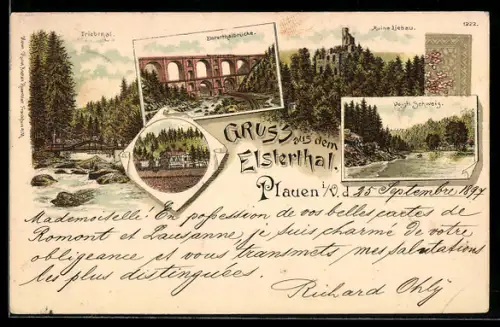 Triebthal.
Elsterthalbrücke.
Ruine Liebau.
1222.
Voigtl. Schweiz.
GRUSS aus dem
Elsterthal.
Plauen i/V. d. 25 Septembre 1897
Mademoiselle! En possession de vos belles cartes de
Romont et Lausanne, je suis charmé de votre
obligeance et vous transmets mes salutations
les plus distinguées.
Richard Ohly